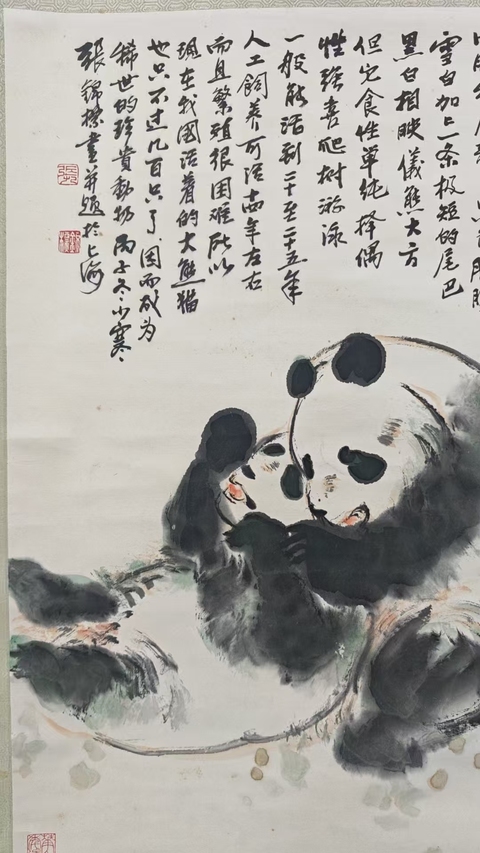 雪白加上一条极短的尾巴
黑白相映儀熊大方
但它食性單纯择偶
性强喜爬树游泳
一般能活到二十至二十五年
人工飼养可活年左右
而且繁殖很困难所以
现在我國活着的大熊猫
也只不过几百只了因而成为
稀世的珍貴動物 丙子冬小寒
張錦標畫并题於上海